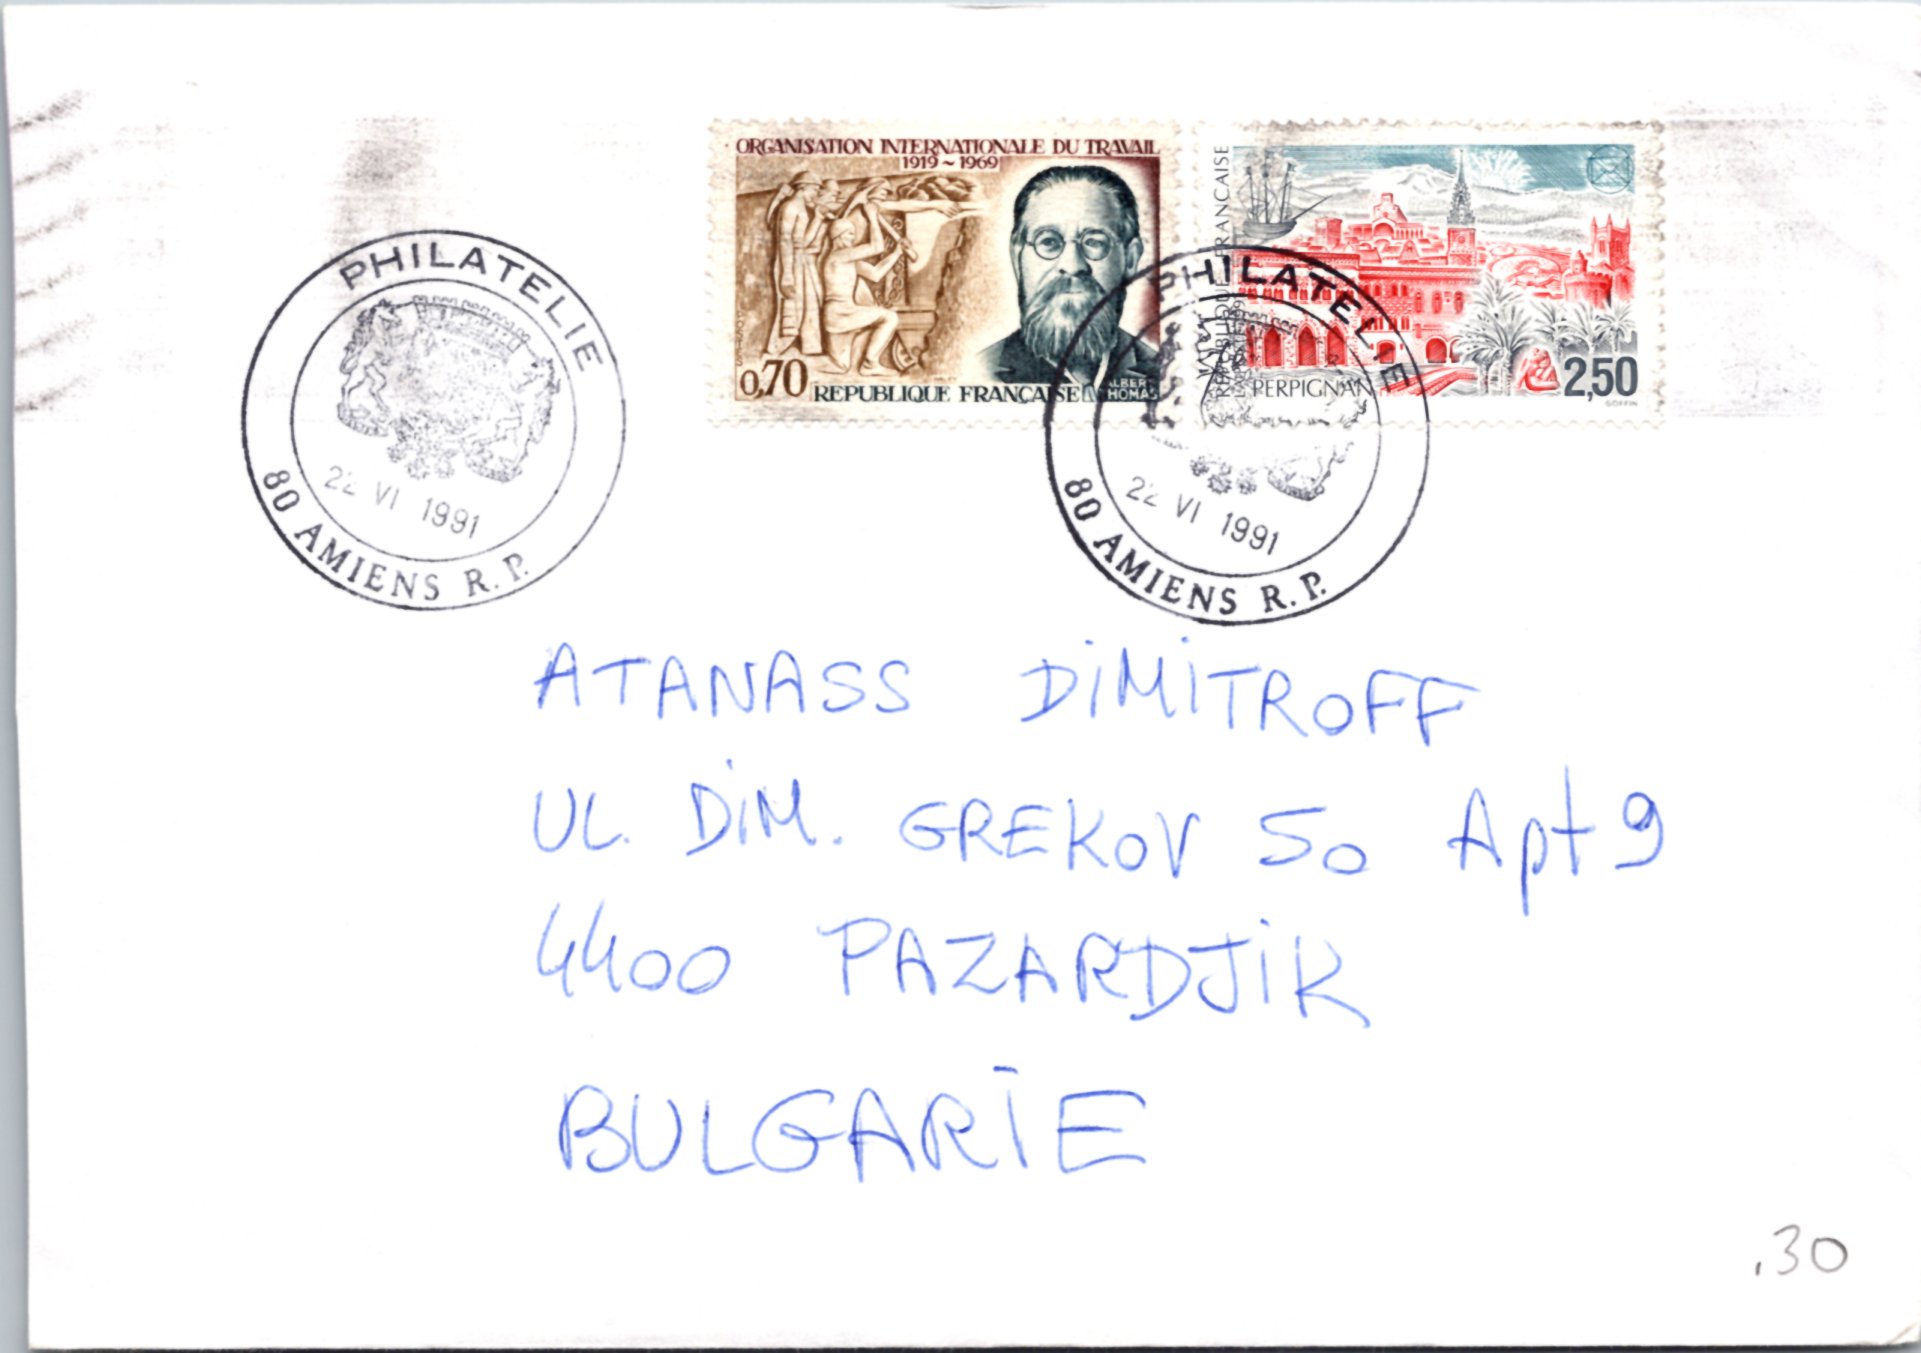 ORGANISATION INTERNATIONALE DU TRAVAIL
1919~1969
0,70 REPUBLIQUE FRANÇAISE ALBERT THOMAS
PERPIGNAN
2,50
GOFFIN
PHILATELIE
22 VI 1991
80 AMIENS R.P.
PHILATELIE
22 VI 1991
80 AMIENS R.P.
ATANASS DIMITROFF
UL. DIM. GREKOV 50 Apt 9
4400 PAZARDJIK
BULGARIE
.30